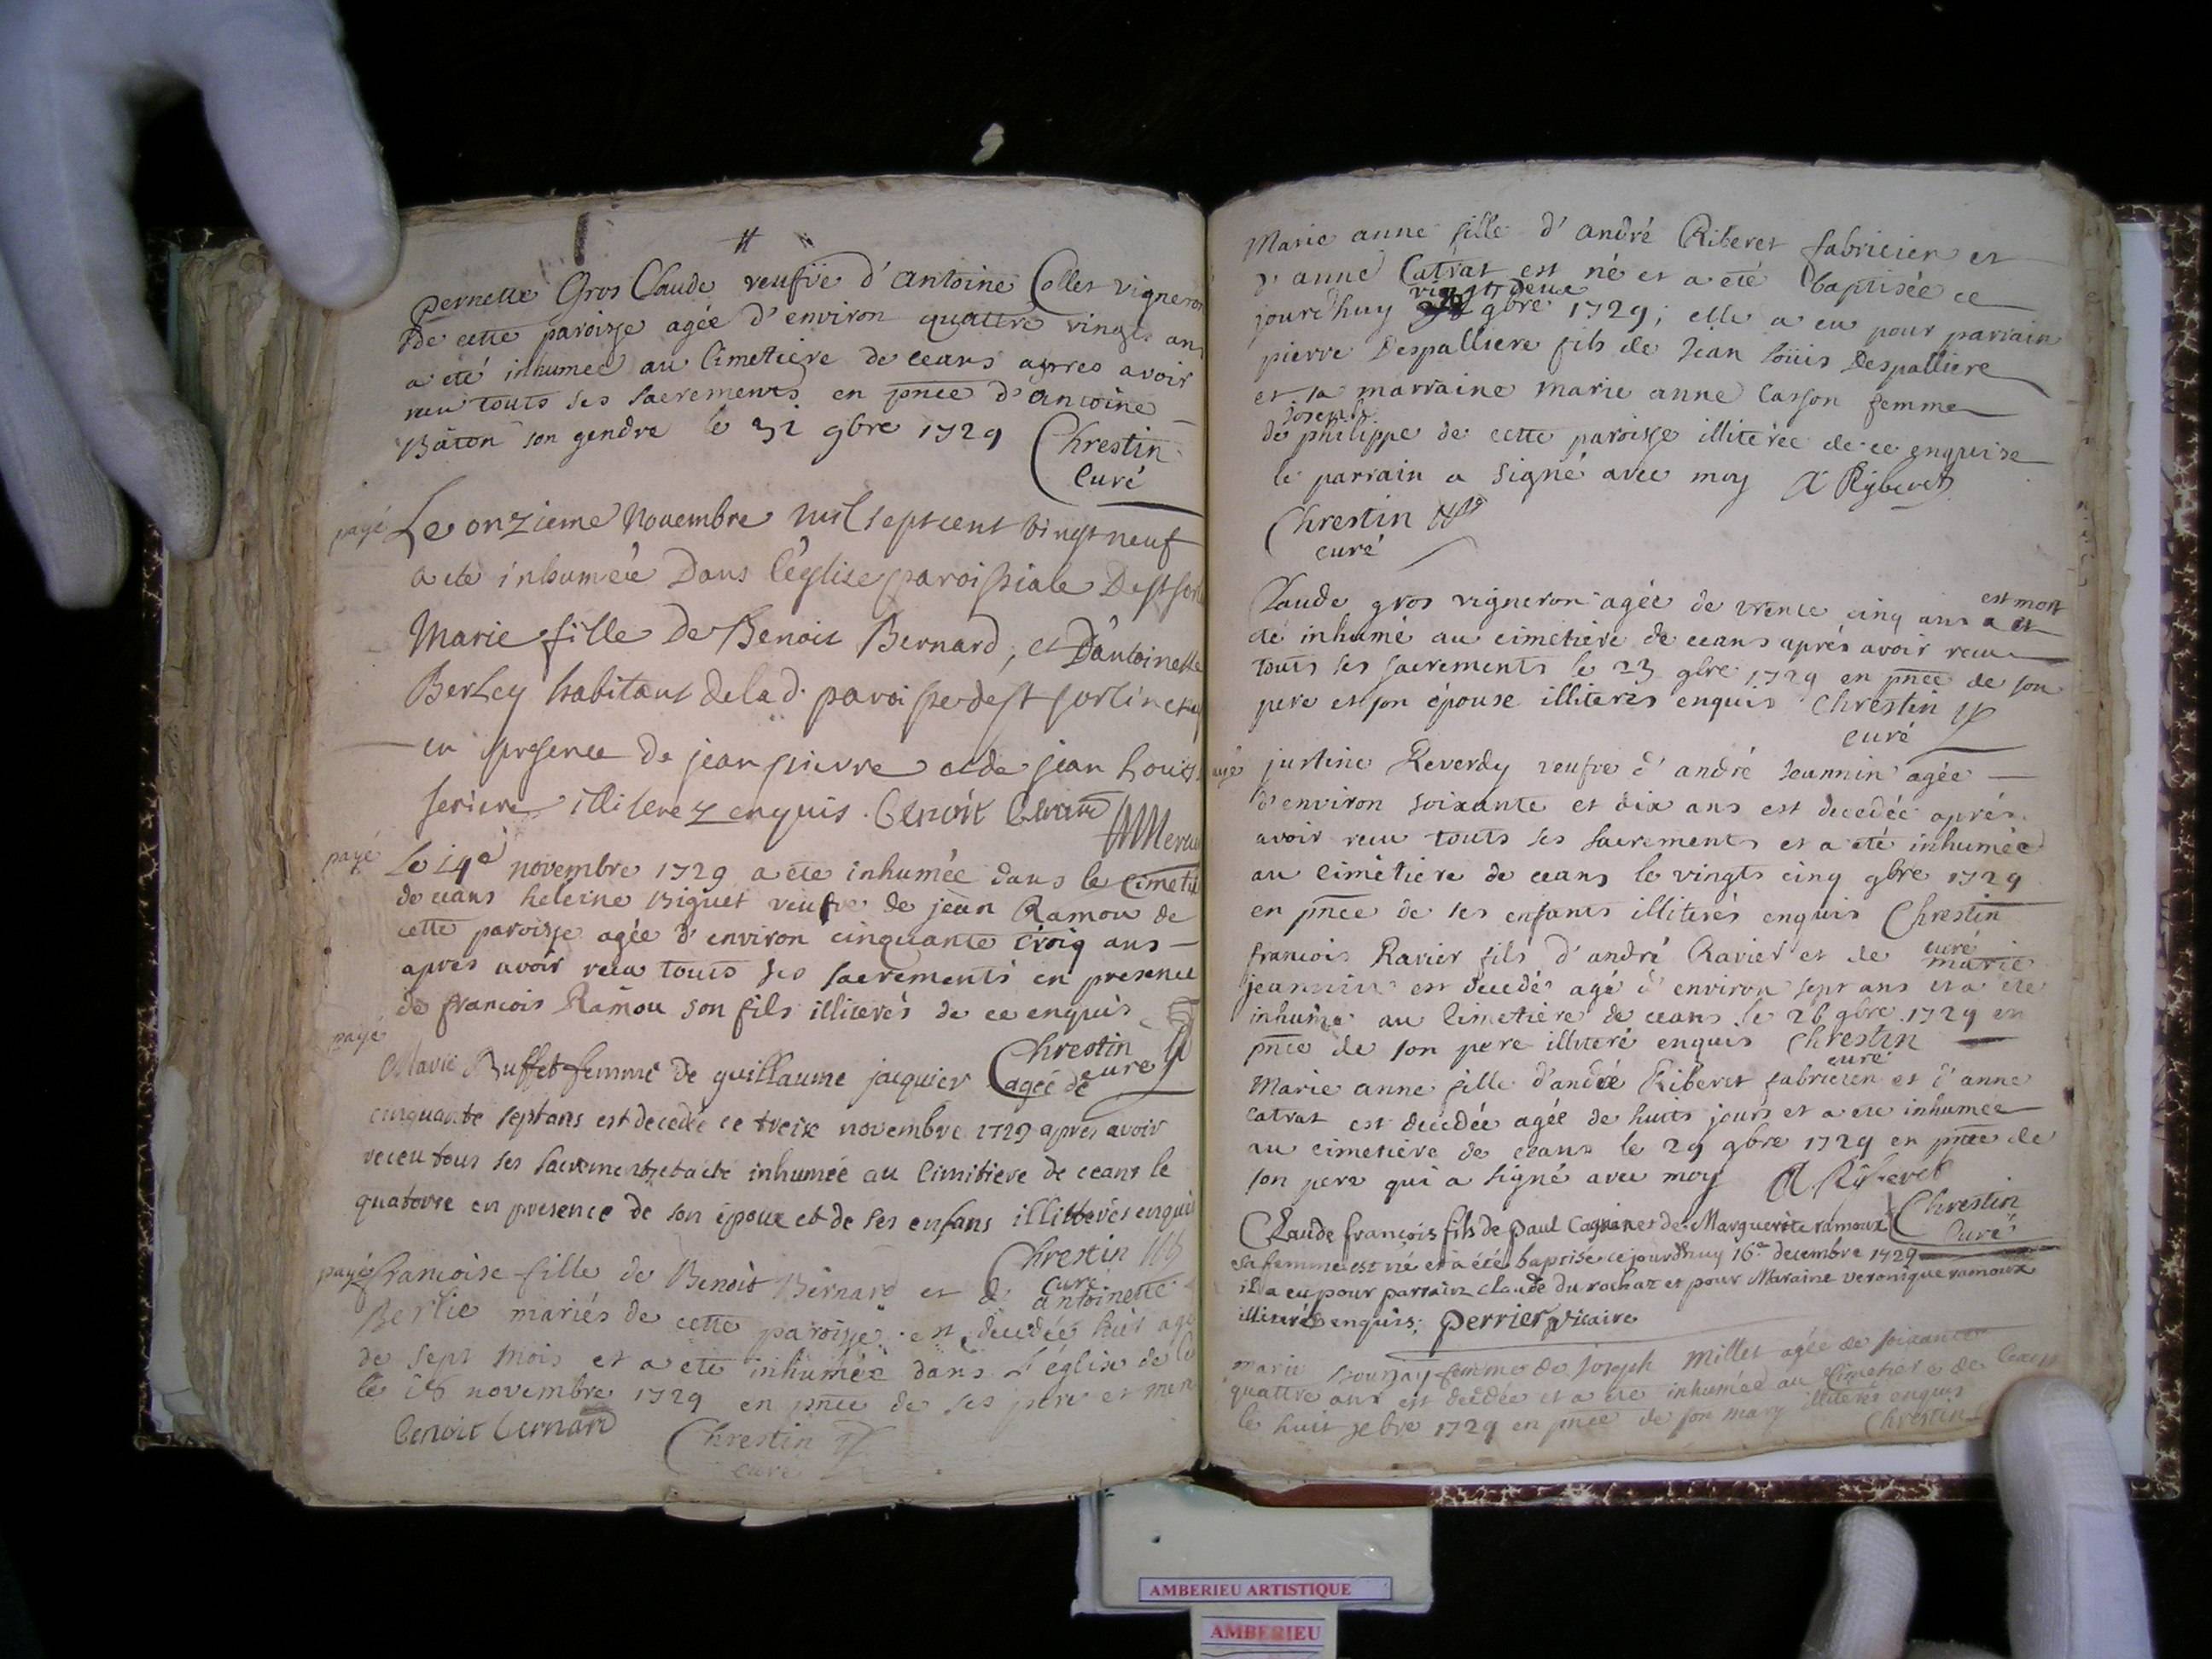 Pernette Gros Claude veufve d'antoine Collet vigneron
De cette paroisse agée d'environ quattre vingts ans
a eté inhumee au Cimetiere de ceans apres avoir
receu touts ses sacrements en pnce d'antoine
Bâton son gendre le gbre 1729 Chrestin
Curé
payé Le onzieme Novembre mil sept cent vingt neuf
a eté inhumée Dans l'église paroissiale De st sorlin
Marie fille De Benoit Bernard, et D'antoinette
Berley habitant de lad. paroisse de st sorlin
en presence de jean pierre et de jean Louis
feriere illiterez enquis. benoit bernard
payé Le 14e novembre 1729 a eté inhumée dans le cimetie
de ceans heleine Biguet veufve de jean Ramou de
cette paroisse agée d'environ cinquante ans
apres avoir receu touts ses sacrements en presence
de francois Ramou son fils illiterés de ce enquis
Chrestin
curé
payé Marie Buffet femme de guillaume jacquier agée de
cinquante sept ans est decedée ce treize novembre 1729 apres avoir
receu tous ses sacrements et a eté inhumée au Cimitiere de ceans le
quatorze en presence de son epoux et de ses enfans illitterés enquis
Chrestin
curé
payé francoise fille de Benoit Bernard et d' antoinette
Berlie mariés de cette paroisse est decedée hier agée
de sept mois et a eté inhumée dans l'église de
le 26 novembre 1729 en pnce de ses pere et mere
benoit bernard Chrestin
curé
Marie anne fille d'andré Riberet fabricien et
d'anne Catrat est né et a eté baptisée ce
jourd'huy vingt deux gbre 1729; elle a eu pour parrain
pierre Despalliere fils de Jean Loüis Despalliere
et sa marraine marie anne Casson femme
joseph
de philippe de cette paroisse illiterée de ce enquise
le parrain a signé avec moy A Ryberet
Chrestin
curé
Claude gros vigneron agée de trente cinq ans est mort a et
eté inhumé au cimetiere de ceans aprés avoir receu
touts ses sacrements le 23 gbre 1729 en pnce de son
pere et son épouse illiterés enquis Chrestin
curé
justine Reverdy veufve d'andré Jeannin agée
d'environ soixante et dix ans est decedée aprés
avoir receu touts ses sacrements et a eté inhumée
au cimêtiere de ceans le vingts cinq gbre 1729
en pnce de ses enfants illiterés enquis Chrestin
curé
francois Ravier fils d'andré Ravier et de marie
jeannin est decedé agé d'environ sept ans et a eté
inhumé au Cimetiere de ceans le 26 gbre 1729 en
pnce de son pere illiteré enquis Chrestin
curé
Marie anne fille d'andré Riberet fabricien et d'anne
Catrat est decedée agée de huits jours et a eté inhumee
au cimetiere de ceans le 29 gbre 1729 en pnce de
son pere qui a signé avec moy A Ryberet
Chrestin
Curé
Claude francois fils de paul Cagnin et de Marguerite ramoux
sa femme est né et a été baptisé ce jourdhuy 16e decembre 1729
il a eu pour parrain claude du rochat et pour Maraine veronique ramoux
illiterés enquis. perrier vicaire
marie femme de joseph Millet agée de soixante
quattre ans est decedée et a eté inhumée au Cimetiere de Ceans
le huit xbre 1729 en pnce de son mary illiterés enquis
Chrestin
AMBERIEU ARTISTIQUE
AMBERIEU